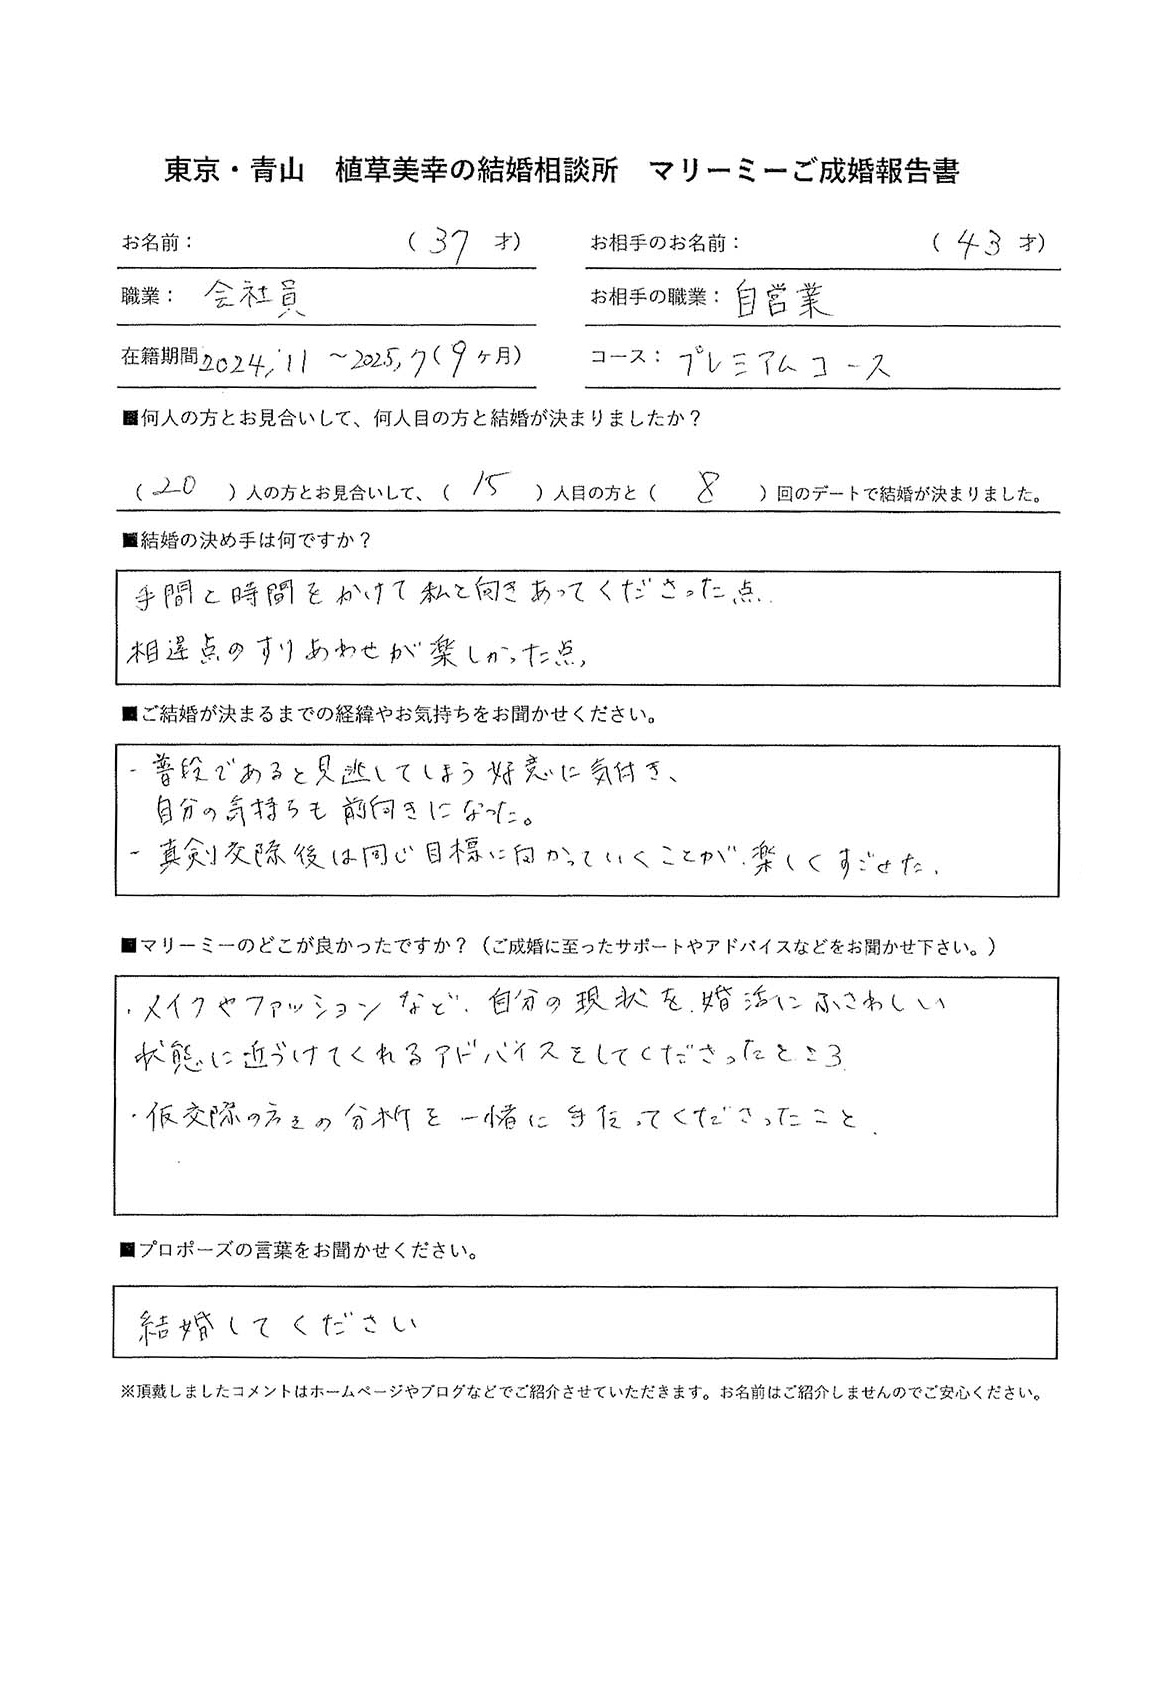 東京・青山　植草美幸の結婚相談所　マリーミーご成婚報告書
お名前：　（ 37 才）　お相手のお名前：　（ 43 才）
職業：　会社員　お相手の職業：　自営業
在籍期間 2024.11 ～2025.7（9ヶ月）　コース：　プレミアムコース
■何人の方とお見合いして、何人目の方と結婚が決まりましたか？
（ 20 ）人の方とお見合いして、（ 15 ）人目の方と（ 8 ）回のデートで結婚が決まりました。
■結婚の決め手は何ですか？
手間と時間をかけて私と向きあってくださった点.
相違点のすりあわせが楽しかった点,
■ご結婚が決まるまでの経緯やお気持ちをお聞かせください。
- 普段であると見逃してしまう好意に気付き、
自分の気持ちも前向きになった。
- 真剣交際後は同じ目標に向かっていくことが、楽しくすごせた.
■マリーミーのどこが良かったですか？（ご成婚に至ったサポートやアドバイスなどをお聞かせ下さい。）
・メイクやファッションなど、自分の現状を、婚活にふさわしい
状態に近づけてくれるアドバイスをしてくださったところ
・仮交際の方々の分析を一緒に手伝ってくださったこと.
■プロポーズの言葉をお聞かせください。
結婚してください
※頂戴しましたコメントはホームページやブログなどでご紹介させていただきます。お名前はご紹介しませんのでご安心ください。